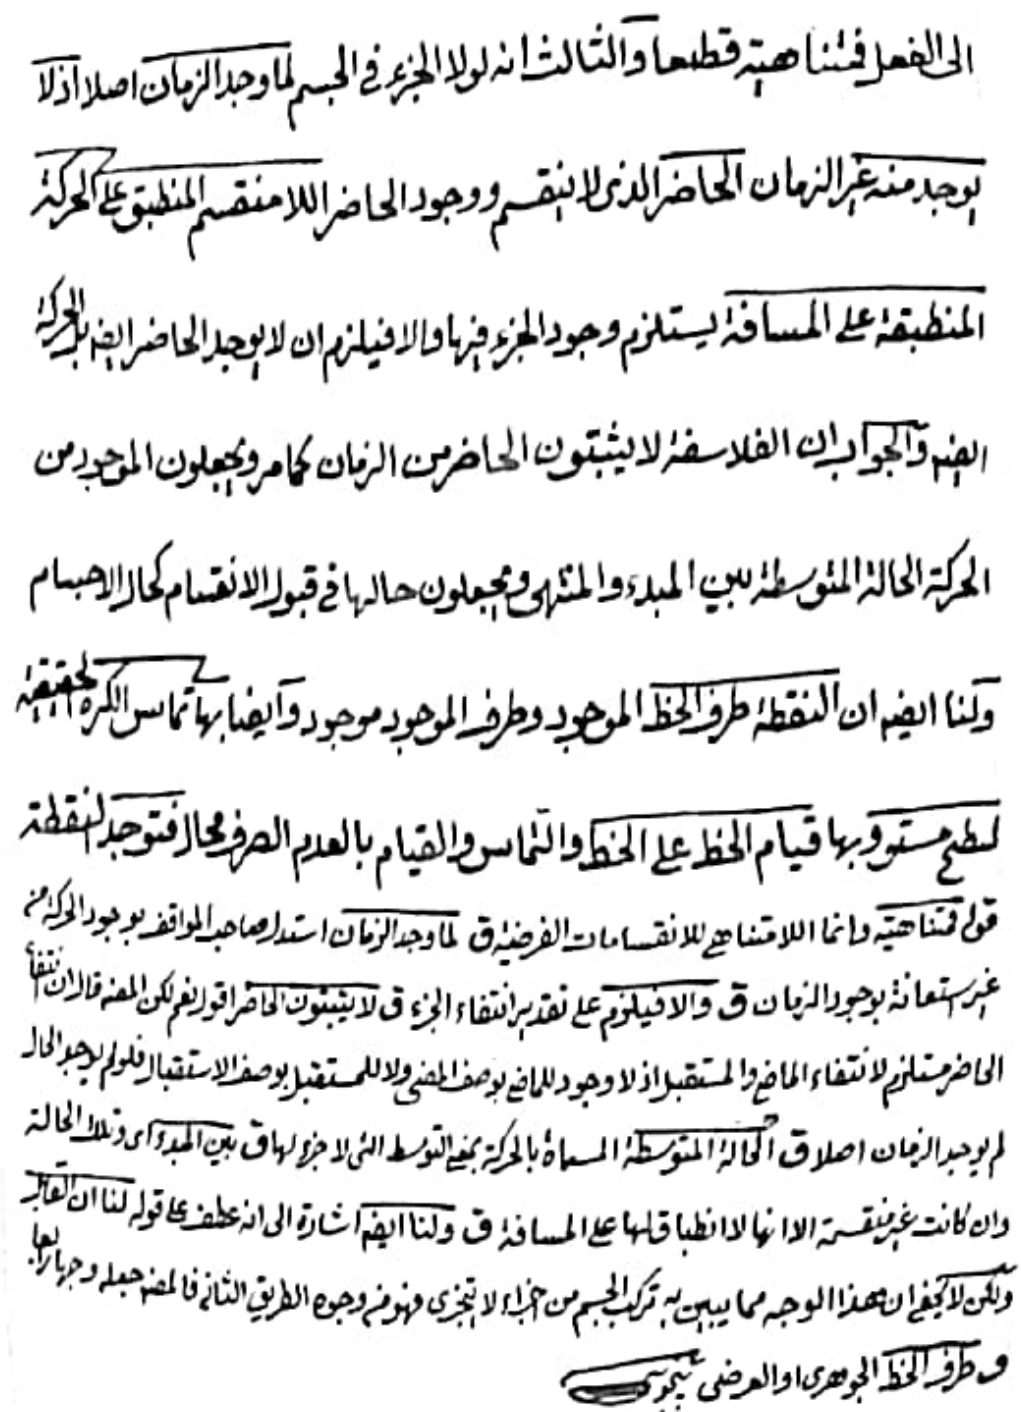 الى الفعل فمتناهية قطعا والثالث انه لولا الجزء فى الجسم لما وجد الزمان اصلا اذ لا
يوجد منه غير الزمان الحاضر الذى لا ينقسم ووجود الحاضر اللا منقسم المنطبق على الحركة
المنطبقة على المسافة يستلزم وجود الجزء فيها والا فيلزم ان لا يوجد الحاضر ايضه بل الحركة
ايضه والجواب ان الفلاسفة لا يثبتون الحاضر من الزمان كما مر ويجعلون الموجود من
الحركة الحالة المتوسطة بين المبدء والمنتهى ويجعلون حالها فى قبول الانقسام كحال الاجسام
ولنا ايضه ان النقطة طرف الخط الموجود وطرف الموجود موجود وايضا بها تماس الكرة الحقيقية
لسطح مستو وبها قيام الخط على الخط والتماس والقيام بالعدم الصرف محال فتوجد النقطة
قوله فمتناهية وانما اللا متناهى للانقسامات الفرضية ق لما وجد الزمان استدل صاحب المواقف بوجود الحركة من
غير استعانة بوجود الزمان ق والا فيلزم على تقدير انتفاء الجزء ق لا يثبتون الحاضر اقول نعم لكن المصه قال ان انتفاء
الحاضر مستلزم لانتفاء الماضى والمستقبل اذ لا وجود للماضى بوصف المضى ولا للمستقبل بوصف الاستقبال فلو لم يوجد الحال
لم يوجد الزمان اصلا ق الحالة المتوسطة المسماة بالحركة بمعنى التوسط التى لا جزء لها ق بين المبدء اى وتلك الحالة
وان كانت غير منقسمة الا انها لا انطباق لها على المسافة ق ولنا ايضه اشارة الى انه عطف على قوله لنا ان القابل
ولكن لا يخفى ان هذا الوجه مما يبين به تركب الجسم من اجزاء لا يتجزى فهو من وجوه الطريق الثانى فالمصه جعله وجها رابعا
ق طرف الخط الجوهرى او العرضى